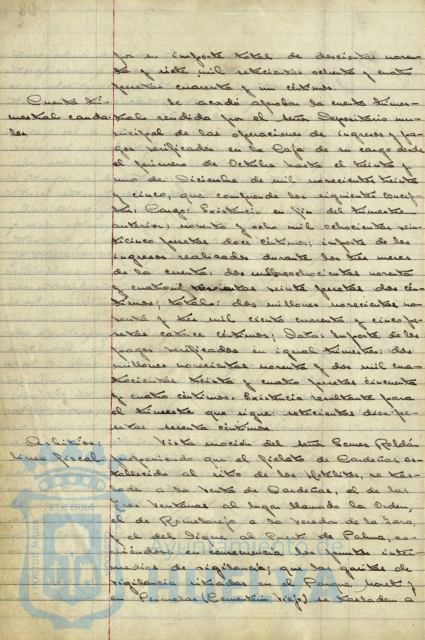 80
por su importe total de doscientas noven-
ta y siete mil setecientas ochenta y cuatro
pesetas cuarenta y un céntimos.
Cuenta tri-
mestral cauda-
les
Se acordó aprobar la cuenta trimes-
tral rendida por el Señor Depositario mu-
nicipal de las operaciones de ingresos y pa-
gos verificados en la Caja de su cargo desde
el primero de Octubre hasta el treinta y
uno de Diciembre de mil novecientos treinta
y cinco, que comprende los siguientes concep-
tos: Cargo: Existencia en fin del trimestre
anterior, noventa y ocho mil ochocientas vein-
ticinco pesetas doce céntimos; importe de los
ingresos realizados durante los tres meses
de la cuenta, dos millones ochocientas noventa
y cuatro mil trescientas veinte pesetas dos cén-
timos; total: dos millones novecientas no-
venta y tres mil ciento cuarenta y cinco pe-
setas catorce céntimos; Data: Importe de los
pagos verificados en igual trimestre: dos
millones novecientas noventa y dos mil cua-
trocientas treinta y cuatro pesetas cincuenta
y cuatro céntimos. Existencia resultante para
el trimestre que sigue: setecientas diez pe-
setas sesenta céntimos.
Arbitrios:
Línea fiscal
Vista moción del Señor Gomez Roldán
proponiendo que el fielato de Cardeñas es-
tablecido al sitio de los Hotelitos, se tras-
lade a la Venta de Cardeñas, el de las
Tres Ventanas al lugar llamado la Orden,
el de Romeralejo a la Vereda de la
y el del Digue al Punt de Palma,
en consecuencia los puntos inter-
medios de vigilancia; que las garitas de
vigilancia situadas el Parque Moret y
en (Cementerio Viejo) se trasladen a
Ayuntamiento de
HUELVA